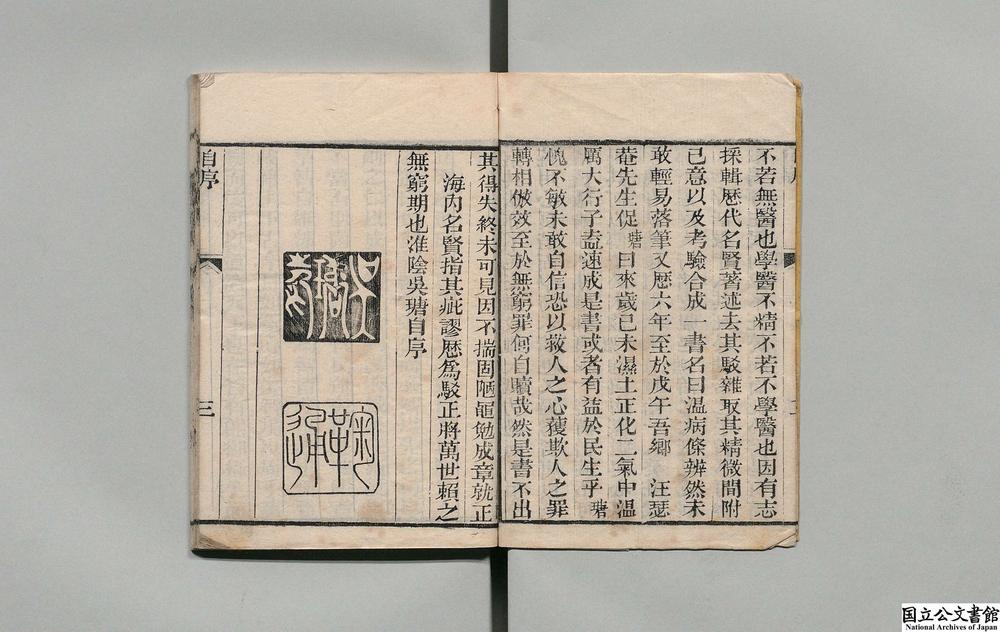 不若無醫也學醫不精不若不學醫也因有志
採輯歴代名賢著述去其駁雜取其精微間附
己意以及考驗合成一書名曰温病條辨然未
敢輕易落筆又歴六年至於戊午吾鄉 汪瑟
菴先生促瑭曰來歲己未濕土正化二氣中温
厲大行子盍速成是書或者有益於民生乎瑭
愧不敏未敢自信恐以救人之心獲欺人之罪
轉相倣效至於無窮罪何自贖哉然是書不出
其得失終未可見因不揣固陋黽勉成章就正
海内名賢指其疵謬歴爲駁正將萬世賴之
無窮期也淮陰吳瑭自序
鞠通
自序
三
国立公文書館
National Archives of Japan